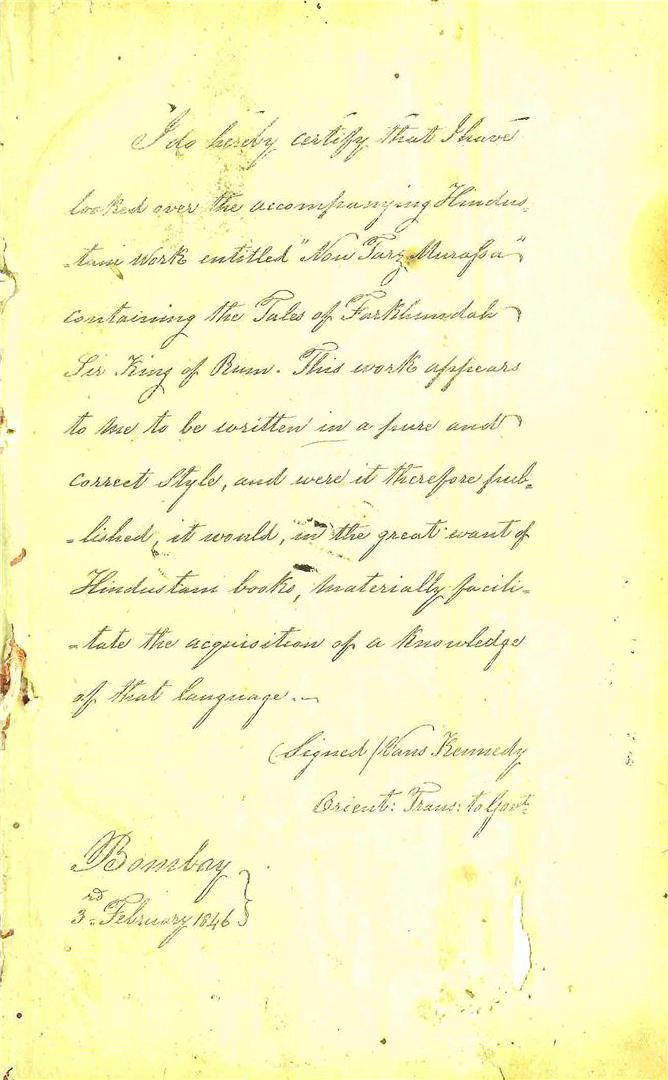 I do hereby certify that I have
looked over the accompanying Hindus-
-tani work entitled "Nou Tarz Murassa"
containing the Tales of Farkhundah
Sir King of Rum. This work appears
to me to be written in a pure and
correct style, and were it therefore pub-
-lished, it would, in the great want of
Hindustani books, materially facili-
-tate the acquisition of a knowledge
of that language.
(Signed) Vans Kennedy
Orient: Trans: to Govt.
Bombay
3rd February 1846